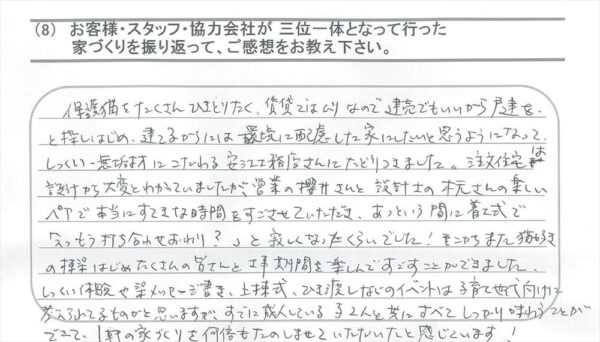 (8) お客様・スタッフ・協力会社が 三位一体となって行った
家づくりを振り返って、ご感想をお教え下さい。
保護猫をたくさんひきとりたく、賃貸ではムリなので建売でもいいから戸建を、
と探しはじめ、建てるからには環境に配慮した家にしたいと思うようになって、
しっくい・無垢材にこだわる安江工務店さんにたどりつきました。注文住宅は
設計から大変とわかっていましたが営業の櫻井さんと設計士の本元さんの楽しい
ペアで本当にすてきな時間をすごさせていただき、あっという間に着工式で
「えっもう打ち合わせおわり？」と寂しくなったくらいでした！そこからまた猫好き
の はじめたくさんの皆さんと 期間を楽しんですごすことができました。
しっくい体験や梁メッセージ書き、上棟式、ひき渡しなどのイベントは子育て世代向けに
考えられてるものかと思いますが、すでに成人している子2人と共にすべてしっかり味わうことが
できて、1軒の家づくりを何倍もたのしませていただいたと感じています！